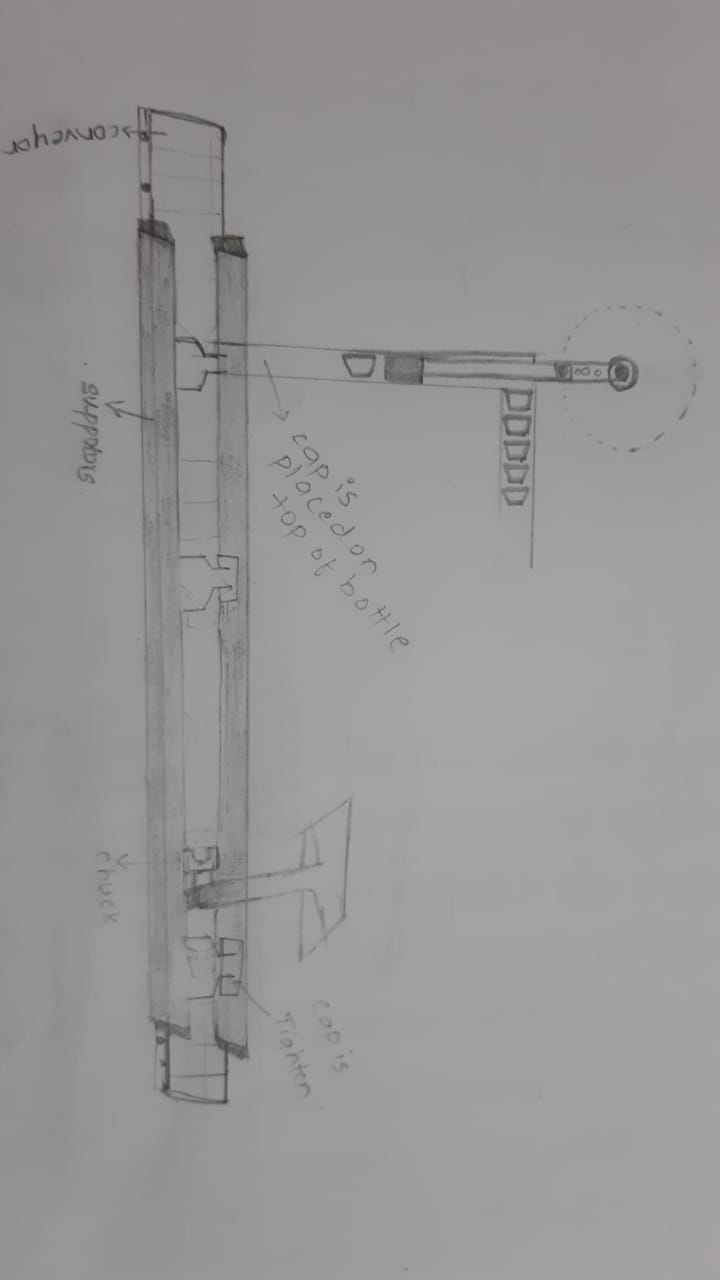 conveyor
supports
cap is
placed on
top of bottle
chuck
cap is
Tighten